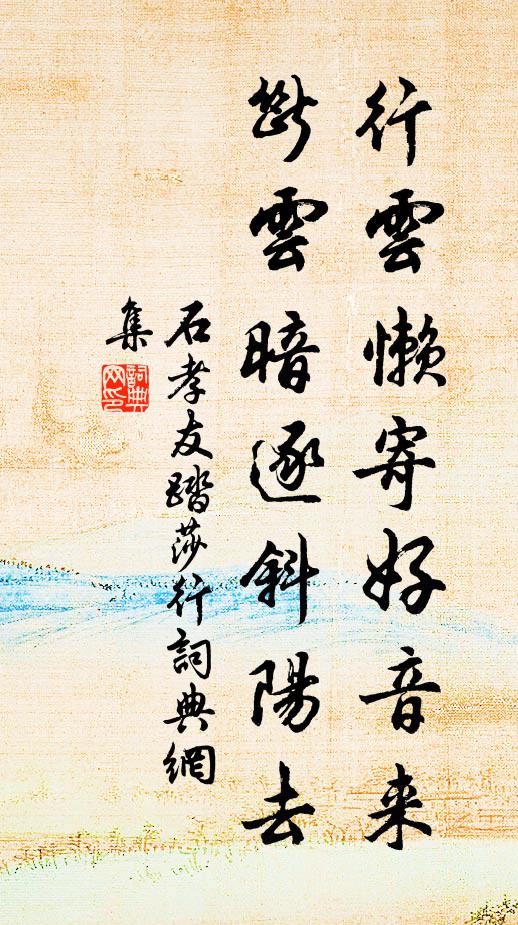 行雲懒寄好音来
断雲暗逐斜陽去
石孝友踏莎行詞典網
集
詞典网印